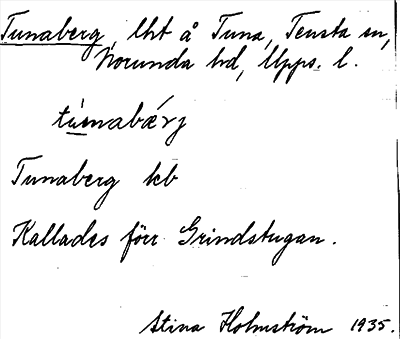 Tunaberg, lht å Tuna, Tensta sn,
Norunda hd, Upps. l.
tú̱nabǽrj
Tunaberg kb
Kallades förr Grindstugan.
Stina Holmström 1935.